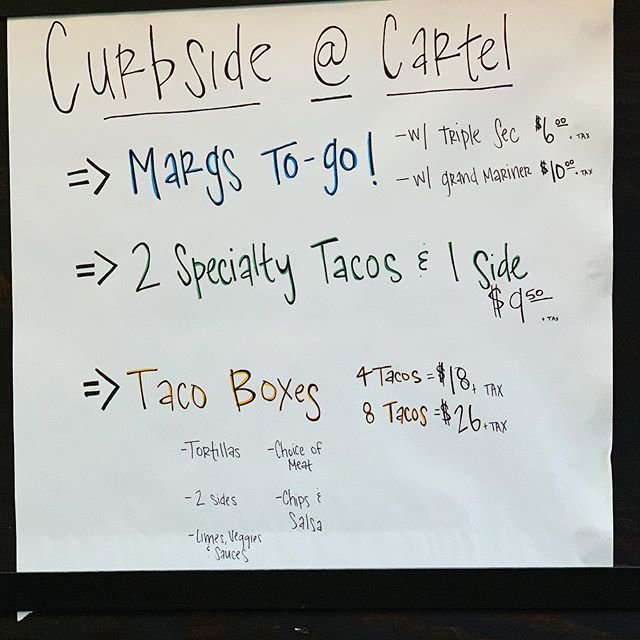 Curbside @ Cartel
=> Margs To-go!
-w/ Triple Sec $6.00 + TAX
-w/ grand Mariner $10.00 + TAX
=> 2 Specialty Tacos & 1 Side
$9.50 + TAX
=> Taco Boxes
4 Tacos = $18 + TAX
8 Tacos = $26 + TAX
-Tortillas
-2 sides
-Limes, Veggies
& Sauces
-Choice of
Meat
-Chips &
Salsa